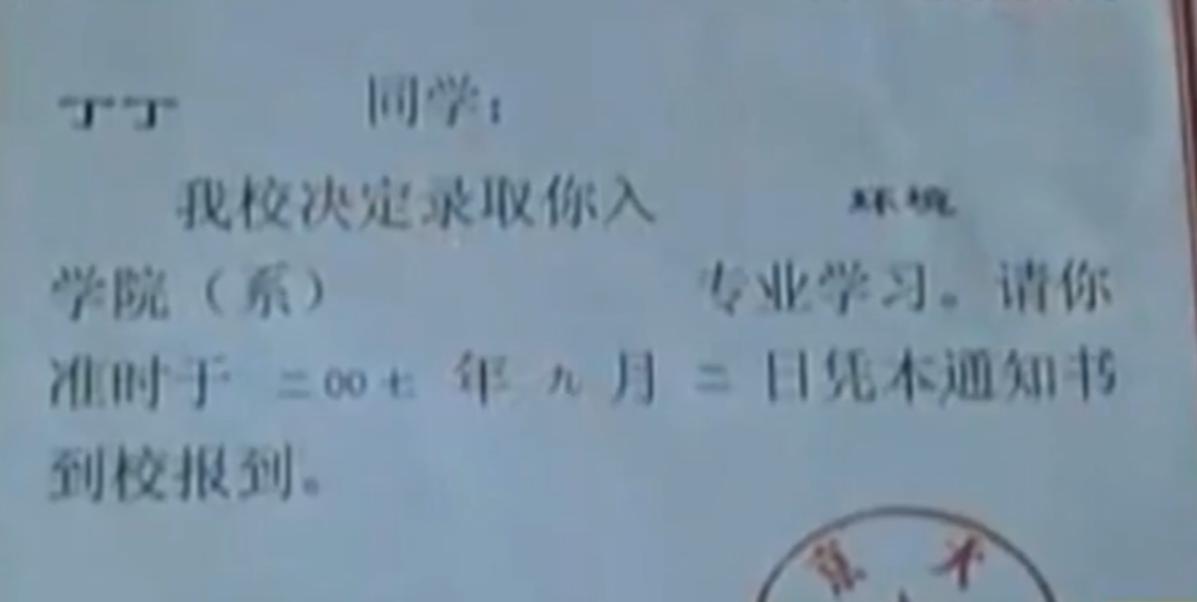 丁丁 同学：
我校决定录取你入 环境
学院（系） 专业学习。请你
准时于 二00七 年 九 月 二 日凭本通知书
到校报到。